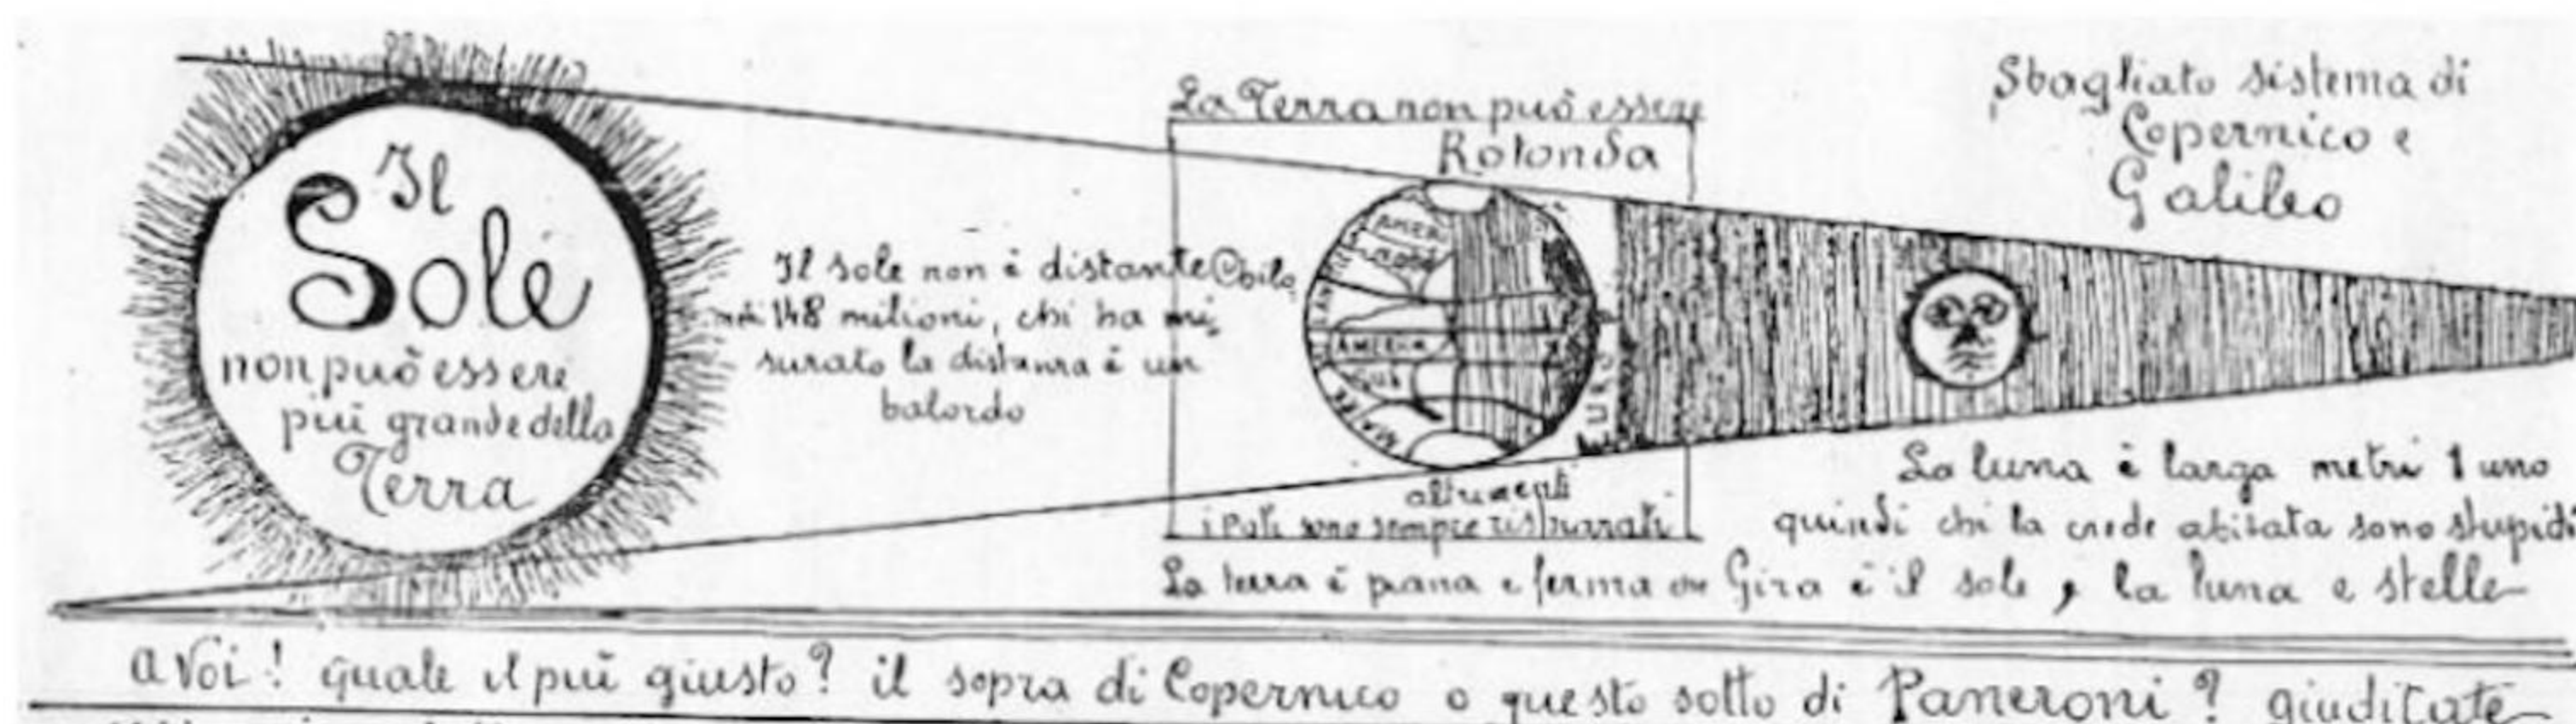 Il
Sole
non può essere
più grande della
Terra
Il sole non è distante Chilo
mè 148 milioni, chi ha mi
surato la distanza è un
balordo
La Terra non può essere
Rotonda
AMERI
MARE
AMERICA
SUD
MARE
EURO
altrimenti
i Poli sono sempre risparati
Sbagliato sistema di
Copernico e
Galileo
La luna è larga metri 1 uno
quindi chi la crede abitata sono stupidi
La terra è piana e ferma che Gira è il sole, la luna e stelle
a Voi! quale il più giusto? il sopra di Copernico o questo sotto di Paneroni? giudicate